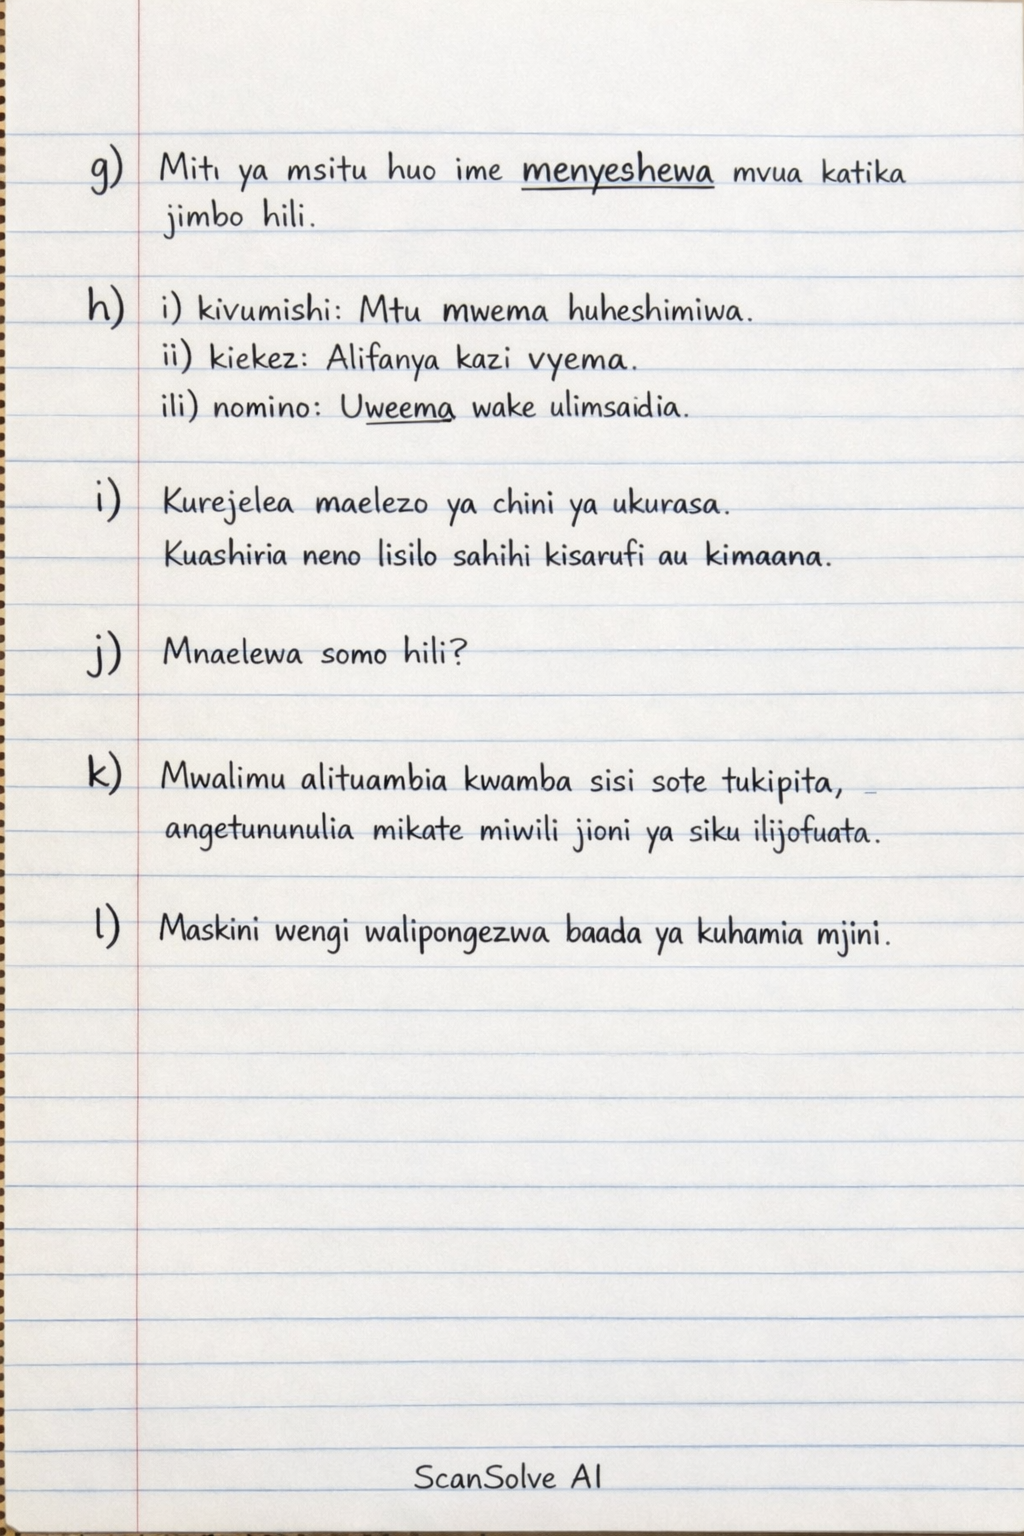 g) Miti ya msitu huo ime menyeshewa mvua katika
jimbo hili.
h) i) kivumishi: Mtu mwema huheshimiwa.
ii) kiekez: Alifanya kazi vyema.
ili) nomino: Uweema wake ulimsaidia.
i) Kurejelea maelezo ya chini ya ukurasa.
Kuashiria neno lisilo sahihi kisarufi au kimaana.
j) Mnaelewa somo hili?
k) Mwalimu alituambia kwamba sisi sote tukipita,
angetununulia mikate miwili jioni ya siku ilijofuata.
l) Maskini wengi walipongezwa baada ya kuhamia mjini.
ScanSolve AI